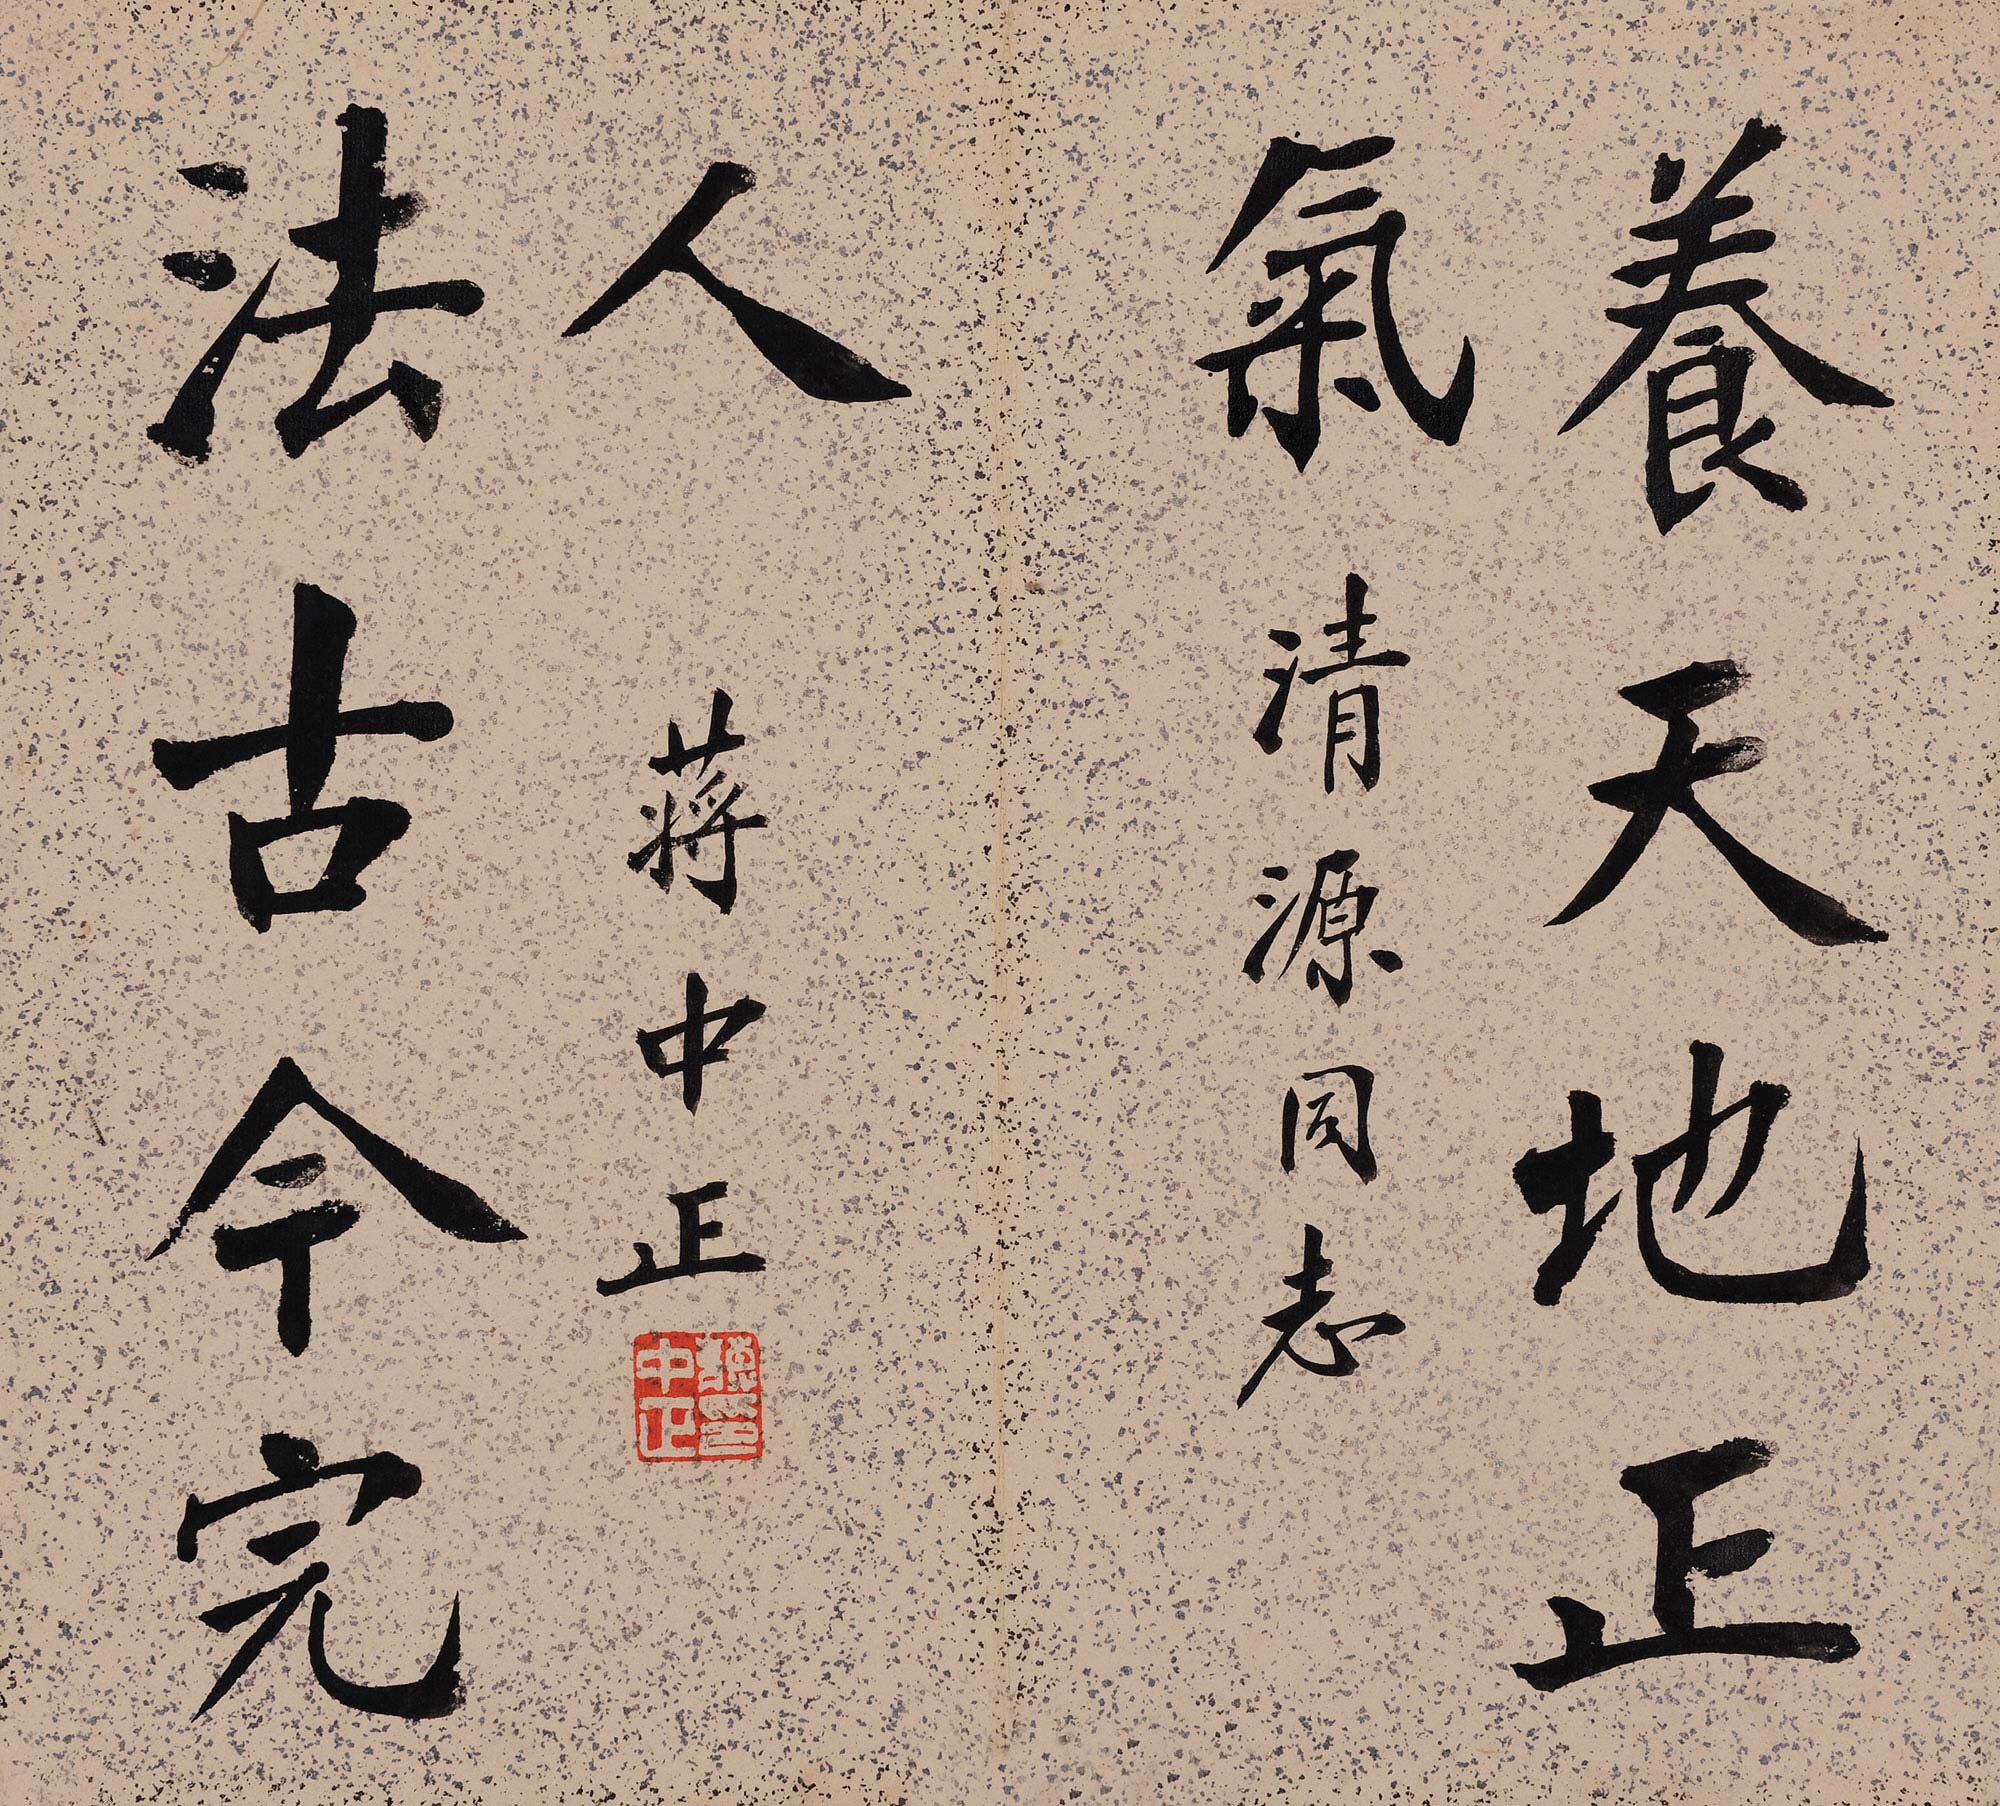 養天地正
氣
清源同志
法古今完
人
蔣中正
中正